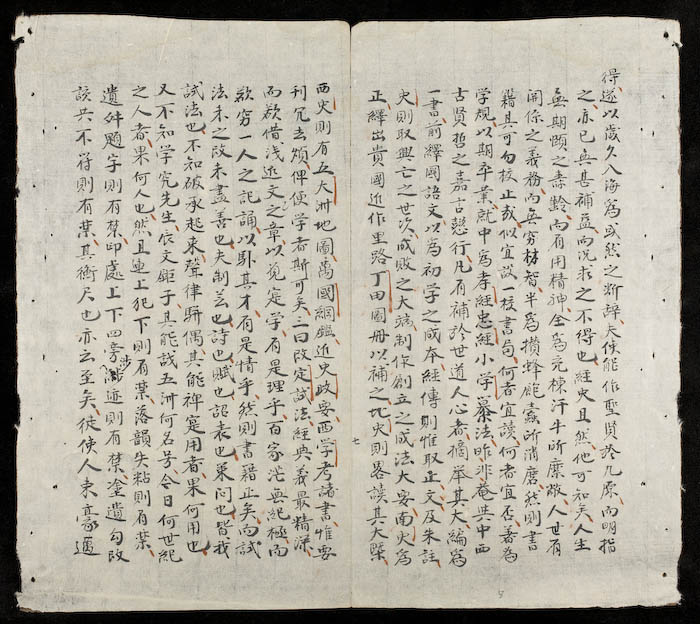 得遂以歲久入海為或然之斷辭大使能作聖賢於九原而明指
之亦已無甚補益而況求之不得也經史且然他可知矣人生
無期頤之壽齡而有用精神全為充棟汗牛所靡敝人世有
開係之義務而無窮材智半為攢蜂飽蠹所消磨然則書
籍其可勿校正哉似宜設一校書局何者宜讀何者宜否著為
学規以期卒業就中為孝經忠經小学纂法昨非菴與中西
古賢哲之嘉言懿行凡有補於世道人心者撮举其大編為
一書前繹國語文以為初学之成本經傳則惟取正文及朱註
史則取興亡之世次成敗之大端制作創立之成法大要南史為
正繹出貴國近作里路丁田圖册以補之北史則畧談其大槩
西史則有五大洲地圖萬國綱鑑近史政要西学考諸書惟要
刋冗去煩俾使学者斯可矣三曰改定試法經典義最精深
而欲借浅近文之章以覓定学有是理乎百家茫無紀極而
欲窮一人之記誦以馭其才有是情乎然則書籍正矣而試
法未之改未盡善也夫制芸也詩也賦也詔表也策问也皆我
試法也不知破承起束聲律駢偶其能裨寔用者果何用也
又不知学究先生辰文鉅子其能識五洲何名号今日何世紀
之人者果何人也然且連上犯下則有葉落韻失粘則有葉
遺舛題字則有禁印處上下四旁涉迹則有禁塗遺勾改
該共不符則有葉其衡尺也亦云至矣徒使人束豪邁